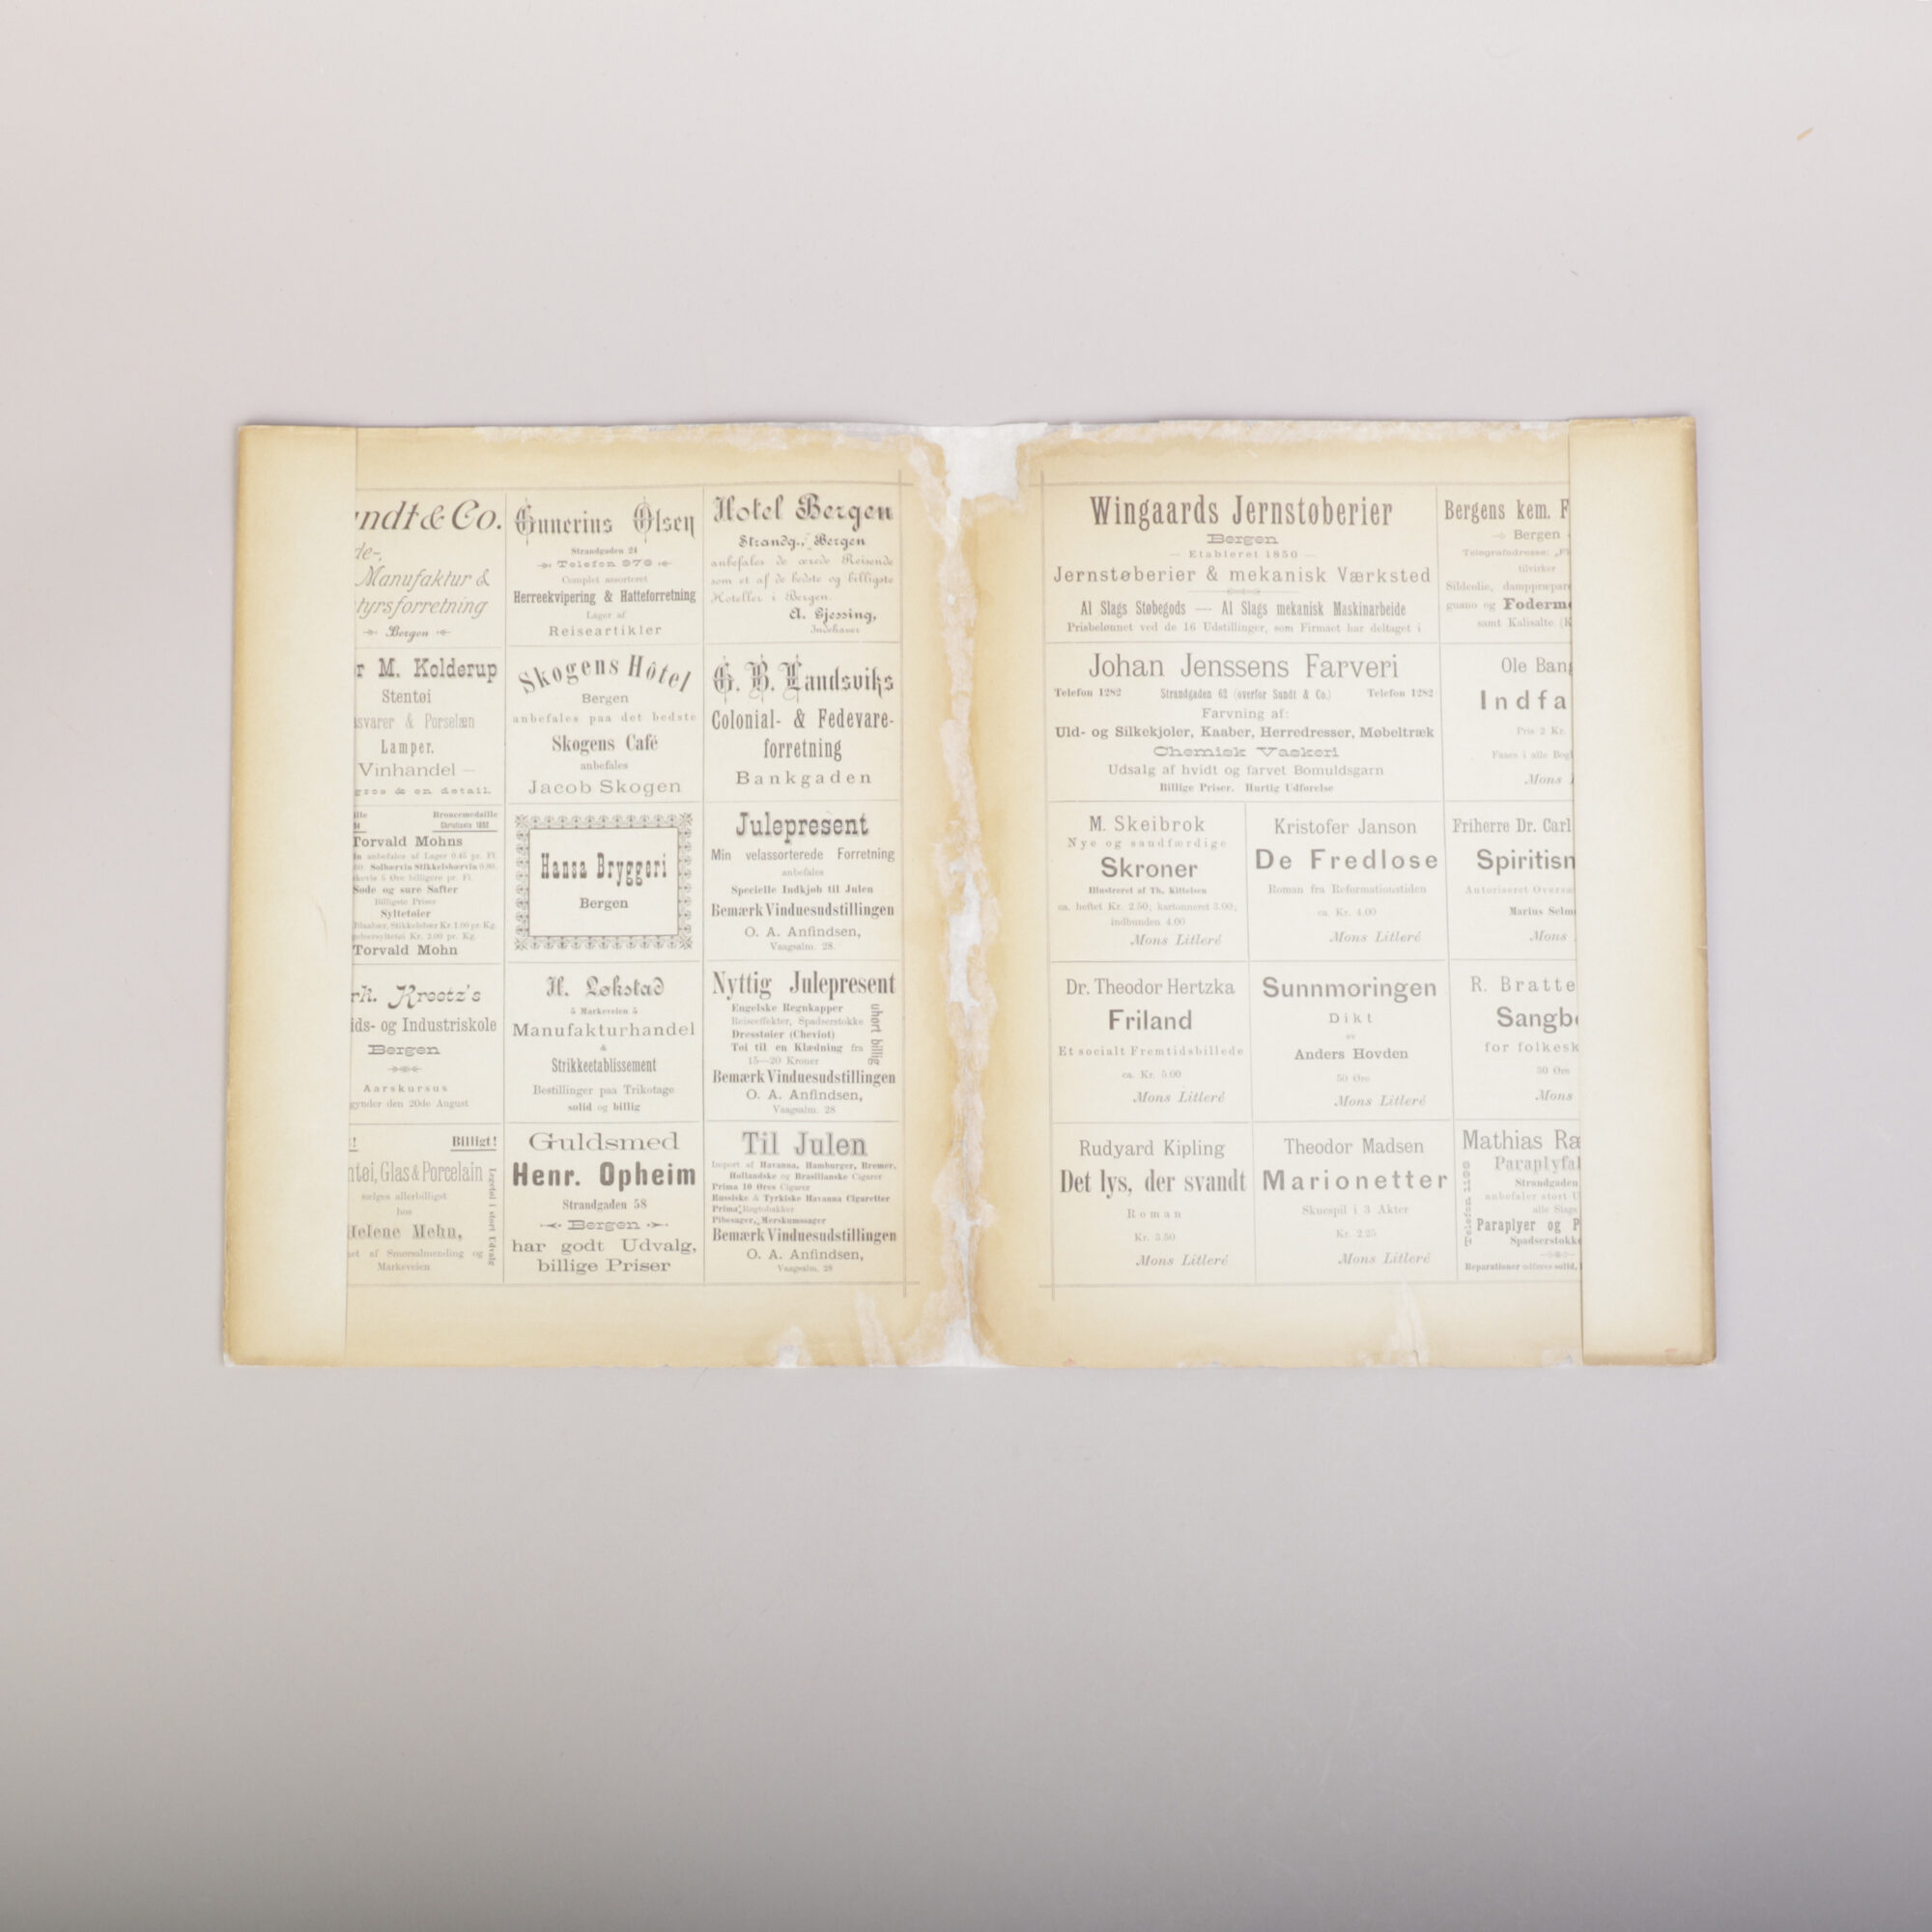 & Co.
Manufaktur &
Bergen
M. Kolderup
Stentøi
& Porselæn
Lamper.
Vinhandel —
& en detail.
Broncemedaille
Torvald Mohns
anbefales af Lager 0.45 pr. Fl.
Solbærvin Stikkelsbærvin 0.80.
5 Øre billigere pr. Fl.
Søde og sure Safter
Billigste Priser
Syltetøier
Blaabær, Stikkelsbær Kr. 1.00 pr. Kg.
Kr. 2.00 pr. Kg.
Torvald Mohn
Krootz's
og Industriskole
Bergen
Aarskursus
den 20de August
Billigt!
Glas & Porcelain
sælges allerbilligst
hos
Helene Mehn,
af Smørsalmending og
Markeveien
Legetøi i stort Udvalg
Gunerius Olsen
Strandgaden 24
Telefon 976
Complet assorteret
Herreekvipering & Hatteforretning
Lager af
Reiseartikler
Skogens Hôtel
Bergen
anbefales paa det bedste
Skogens Café
anbefales
Jacob Skogen
Hansa Bryggeri
Bergen
H. Løkstad
5 Markeveien 5
Manufakturhandel
&
Strikkeetablissement
Bestillinger paa Trikotage
solid og billig
Guldsmed
Henr. Opheim
Strandgaden 58
Bergen
har godt Udvalg,
billige Priser
Hotel Bergen
Strandg., Bergen
anbefales de ærede Reisende
som et af de bedste og billigste
Hoteller i Bergen.
A. Gjessing,
Indehaver
G. B. Landsviks
Colonial- & Fedevare-
forretning
Bankgaden
Julepresent
Min velassorterede Forretning
anbefales
Specielle Indkjøb til Julen
Bemærk Vinduesudstillingen
O. A. Anfindsen,
Vaagsalm. 28.
Nyttig Julepresent
Engelske Regnkapper
Reiseeffekter, Spadserstokke
Dresstøier (Cheviot)
Tøi til en Klædning fra
15—20 Kroner
uhørt billig
Bemærk Vinduesudstillingen
O. A. Anfindsen,
Vaagsalm. 28
Til Julen
Import af Havanna, Hamburger, Bremer,
Hollandske og Brasilianske Cigarer
Prima 10 Øres Cigarer
Russiske & Tyrkiske Havanna Cigaretter
Prima Røgtobakker
Pibesager, Merskumssager
Bemærk Vinduesudstillingen
O. A. Anfindsen,
Vaagsalm. 28
Wingaards Jernstøberier
Bergen
— Etableret 1850 —
Jernstøberier & mekanisk Værksted
Al Slags Støbegods — Al Slags mekanisk Maskinarbeide
Prisbelønnet ved de 16 Udstillinger, som Firmaet har deltaget i
Johan Jenssens Farveri
Telefon 1282 Strandgaden 62 (overfor Sundt & Co.) Telefon 1282
Farvning af:
Uld- og Silkekjoler, Kaaber, Herredresser, Møbeltræk
Chemisk Vaskeri
Udsalg af hvidt og farvet Bomuldsgarn
Billige Priser. Hurtig Udførelse
M. Skeibrok
Nye og sandfærdige
Skroner
Illustreret af Th. Kittelsen
ca. heftet Kr. 2.50; kartonneret 3.00;
indbunden 4.00
Mons Litleré
Kristofer Janson
De Fredløse
Roman fra Reformationstiden
ca. Kr. 4.00
Mons Litleré
Dr. Theodor Hertzka
Friland
Et socialt Fremtidsbillede
ca. Kr. 5.00
Mons Litleré
Sunnmøringen
Dikt
av
Anders Hovden
50 Øre
Mons Litleré
Rudyard Kipling
Det lys, der svandt
Roman
Kr. 3.50
Mons Litleré
Theodor Madsen
Marionetter
Skuespil i 3 Akter
Kr. 2.25
Mons Litleré
Bergens kem. F
Bergen
Telegrafadresse:
tilvirker
Sildeolie,
guano og
samt Kalisalte
Ole Bang
Indfa
Pris 2 Kr.
Faaes i alle
Mons
Friherre Dr. Carl
Spiritism
Autoriseret
Marius
Mons
R. Bratte
Sangb
for folkesk
50 Øre
Mons
Mathias Ra
Paraplyfa
Strandgaden
anbefaler stort U
alle Slags
Paraplyer og P
Spadserstokke
Reparationer udføres solid,